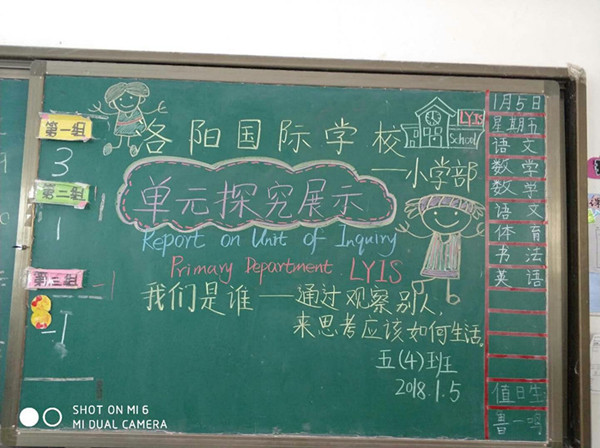 洛阳国际学校
LYIS
School
一小学部
单元探究展示
Report on Unit of Inquiry
Primary Department LYIS
我们是谁——通过观察别人,
来思考应该如何生活。
五(4)班
2018.1.5
第一组
3
第二组
1
第三组
1月5日
星期五
语文
数学
数学
语文
体育
书法
英语
值日生
SHOT ON MI 6
MI DUAL CAMERA